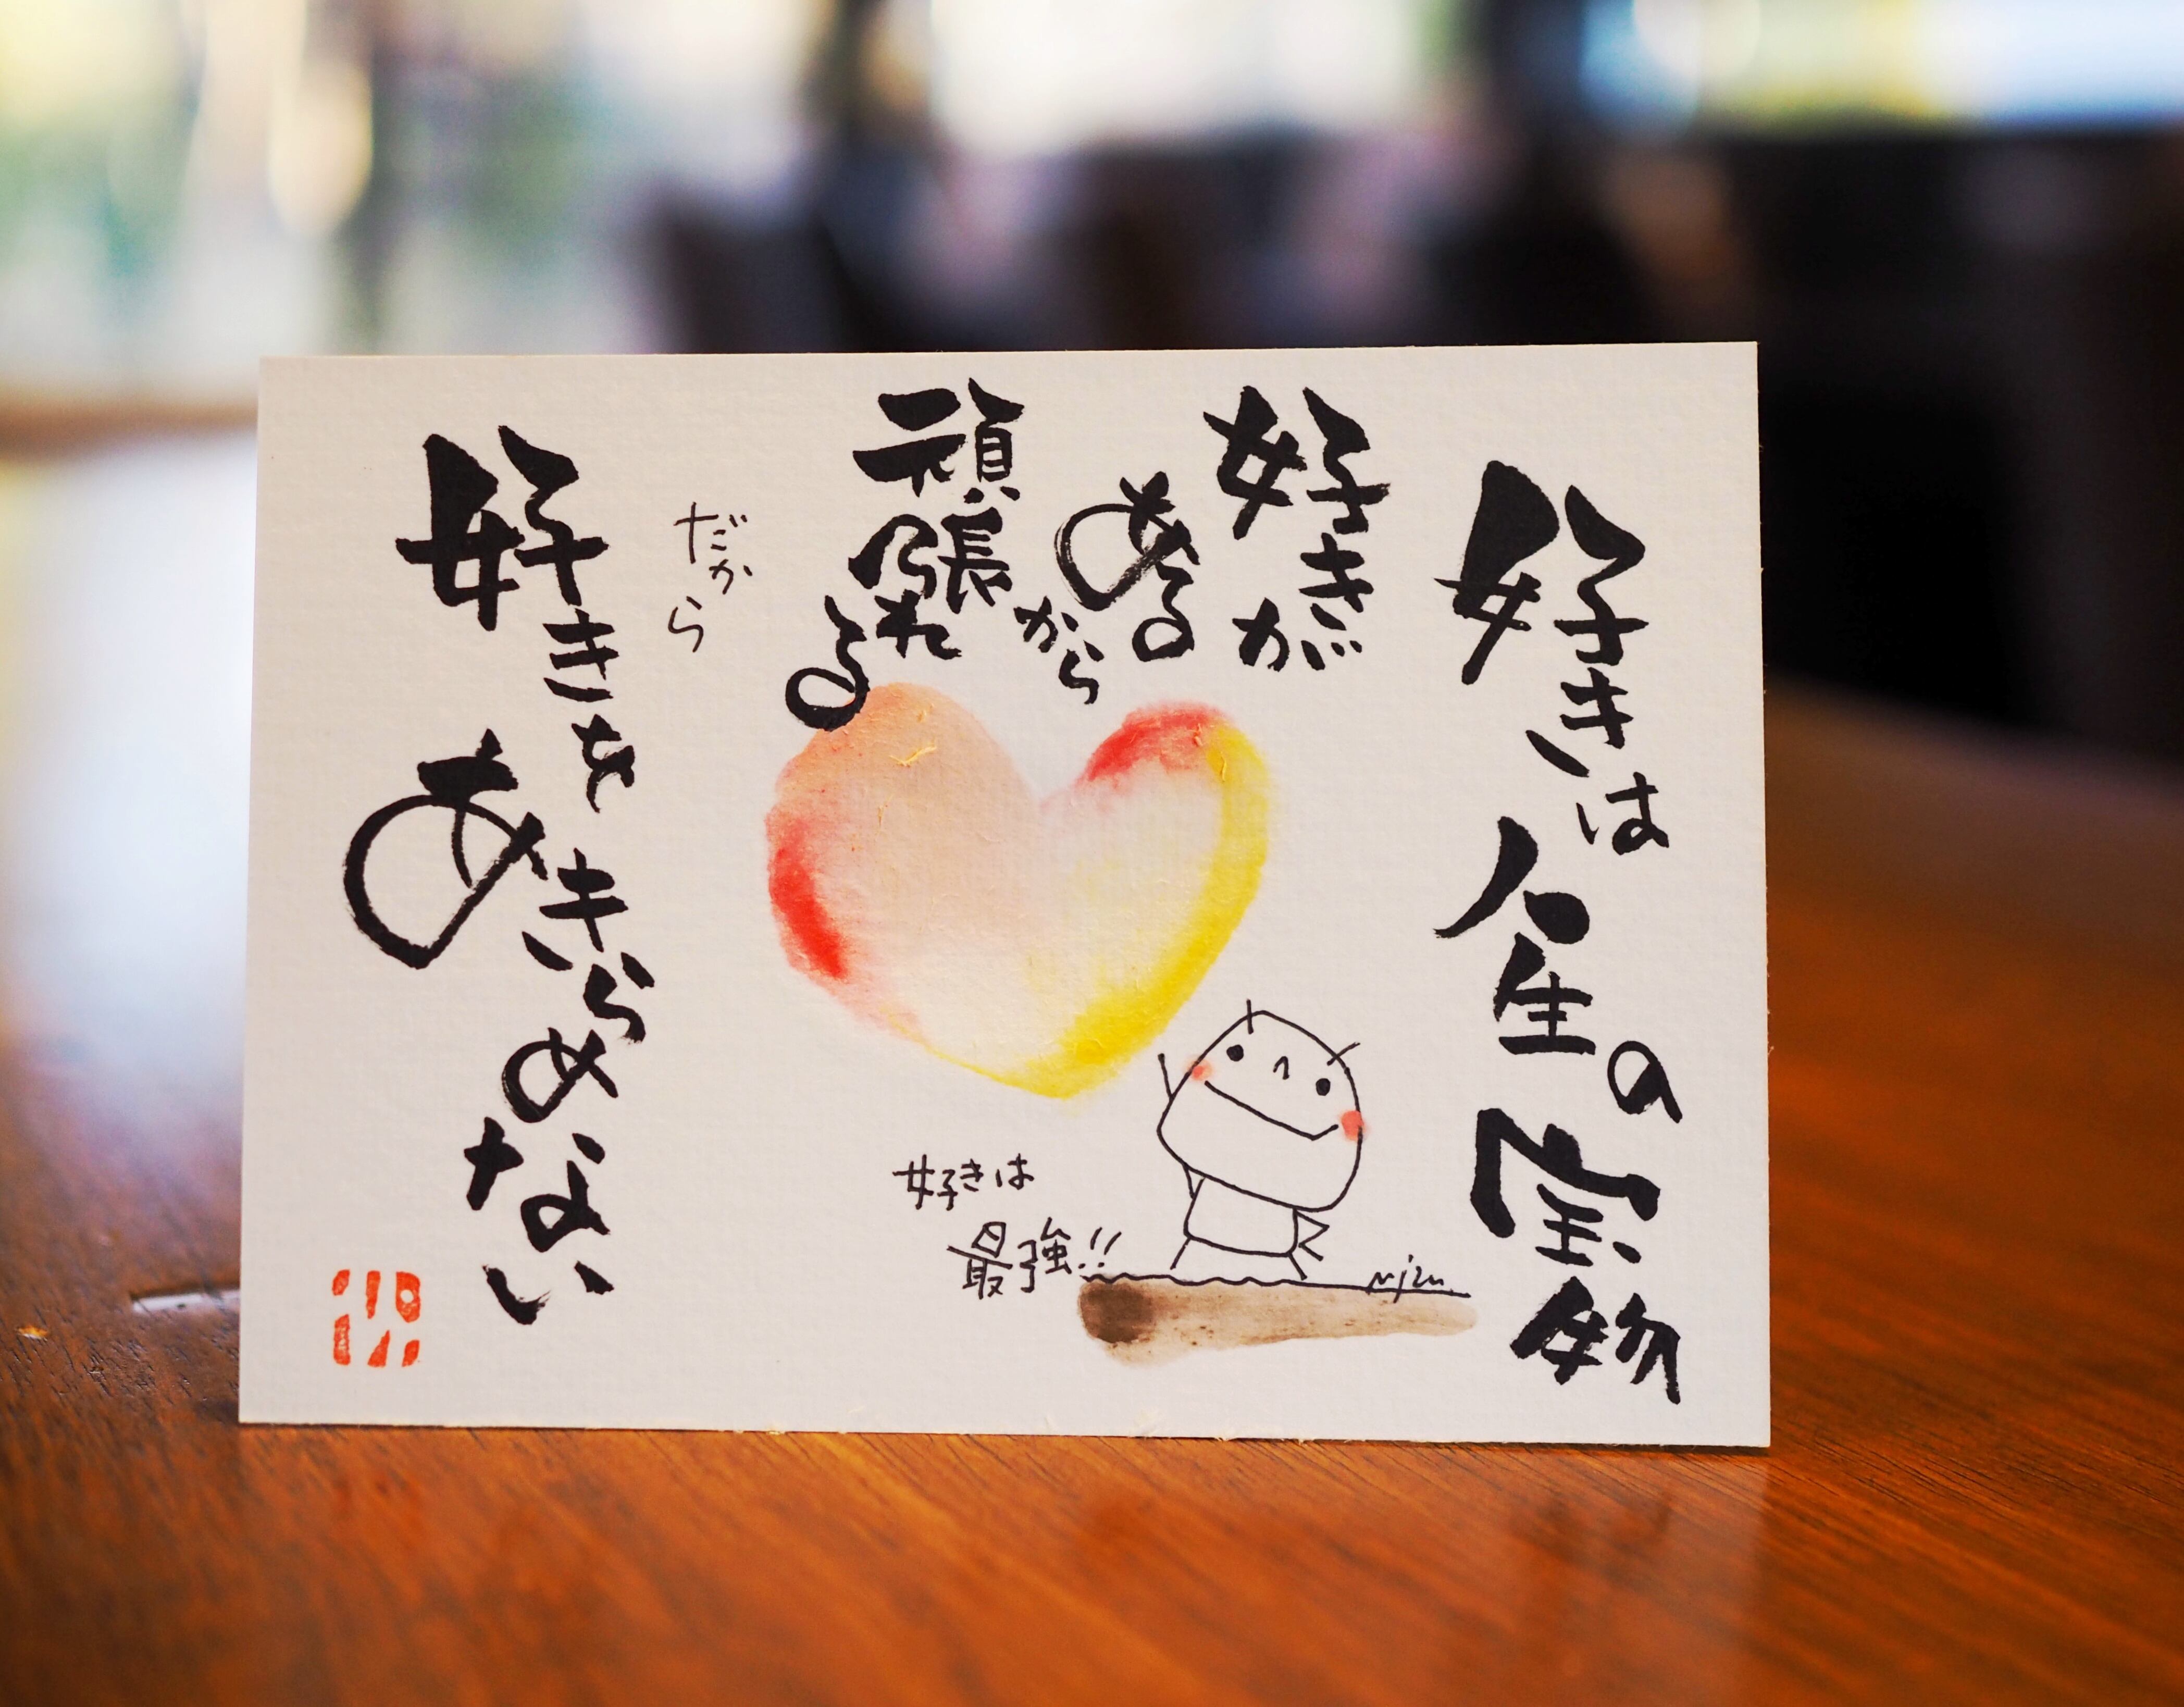 好きは
人生の
宝物
好きが
ある
から
頑張れ
る
だから
好きを
あきらめない
好きは
最強!!